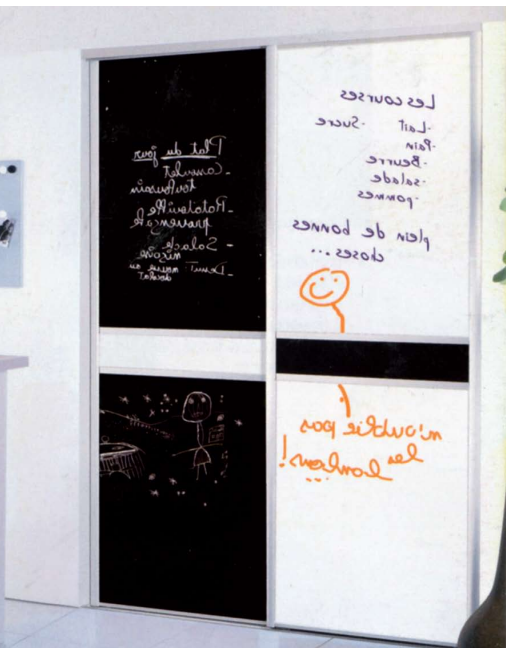 Plat du jour
- Cassoulet
toulousain
- Ratatouille
provençale
- Salade
niçoise
mousse au
chocolat
Les courses
- Lait - Sucre
- Pain
- Beurre
- salade
- pommes
plein de bonnes
choses...
n'oublie pas
les bonbons!